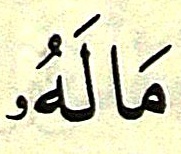 مَالَهُۥ